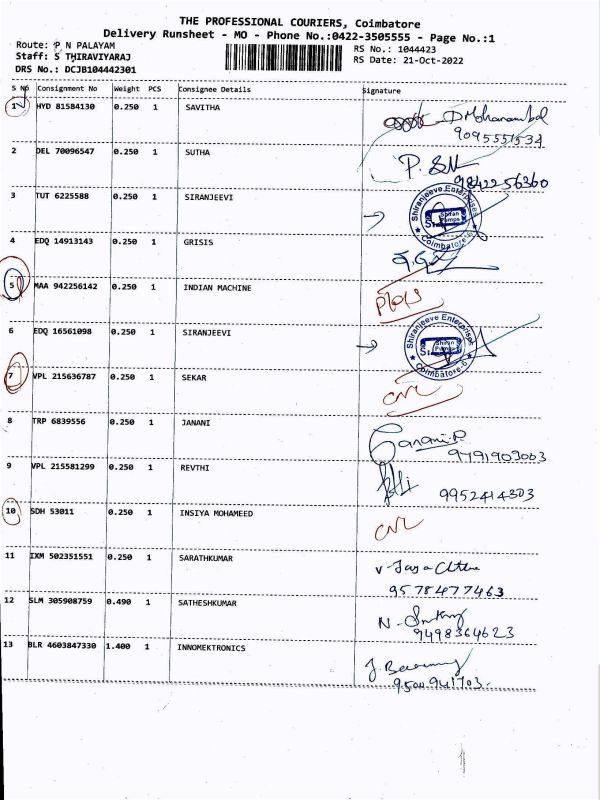 THE PROFESSIONAL COURIERS, Coimbatore
Delivery Runsheet - MO - Phone No.:0422-3505555 - Page No.:1
Route: P N PALAYAM
RS No.: 1044423
Staff: S THIRAVIYARAJ
RS Date: 21-Oct-2022
DRS No.: DCJB104442301
S No Consignment No Weight PCS Consignee Details Signature
1 HYD 81584130 0.250 1 SAVITHA
9095551534
2 DEL 70096547 0.250 1 SUTHA
9842256360
3 TUT 6225588 0.250 1 SIRANJEEVI
Shiranjeeve Enterprises
Coimbatore-6
4 EDQ 14913143 0.250 1 GRISIS
5 MAA 942256142 0.250 1 INDIAN MACHINE
6 EDQ 16561098 0.250 1 SIRANJEEVI
Shiranjeeve Enterprises
Coimbatore-6
7 VPL 215636787 0.250 1 SEKAR
CNL
8 TRP 6839556 0.250 1 JANANI
Janani.R
9791909003
9 VPL 215581299 0.250 1 REVTHI
9952414303
10 SDH 53011 0.250 1 INSIYA MOHAMEED
CNL
11 IXM 502351551 0.250 1 SARATHKUMAR
9578477463
12 SLM 305908759 0.490 1 SATHESHKUMAR
9498364623
13 BLR 4603847330 1.400 1 INNOMEKTRONICS
9500941703